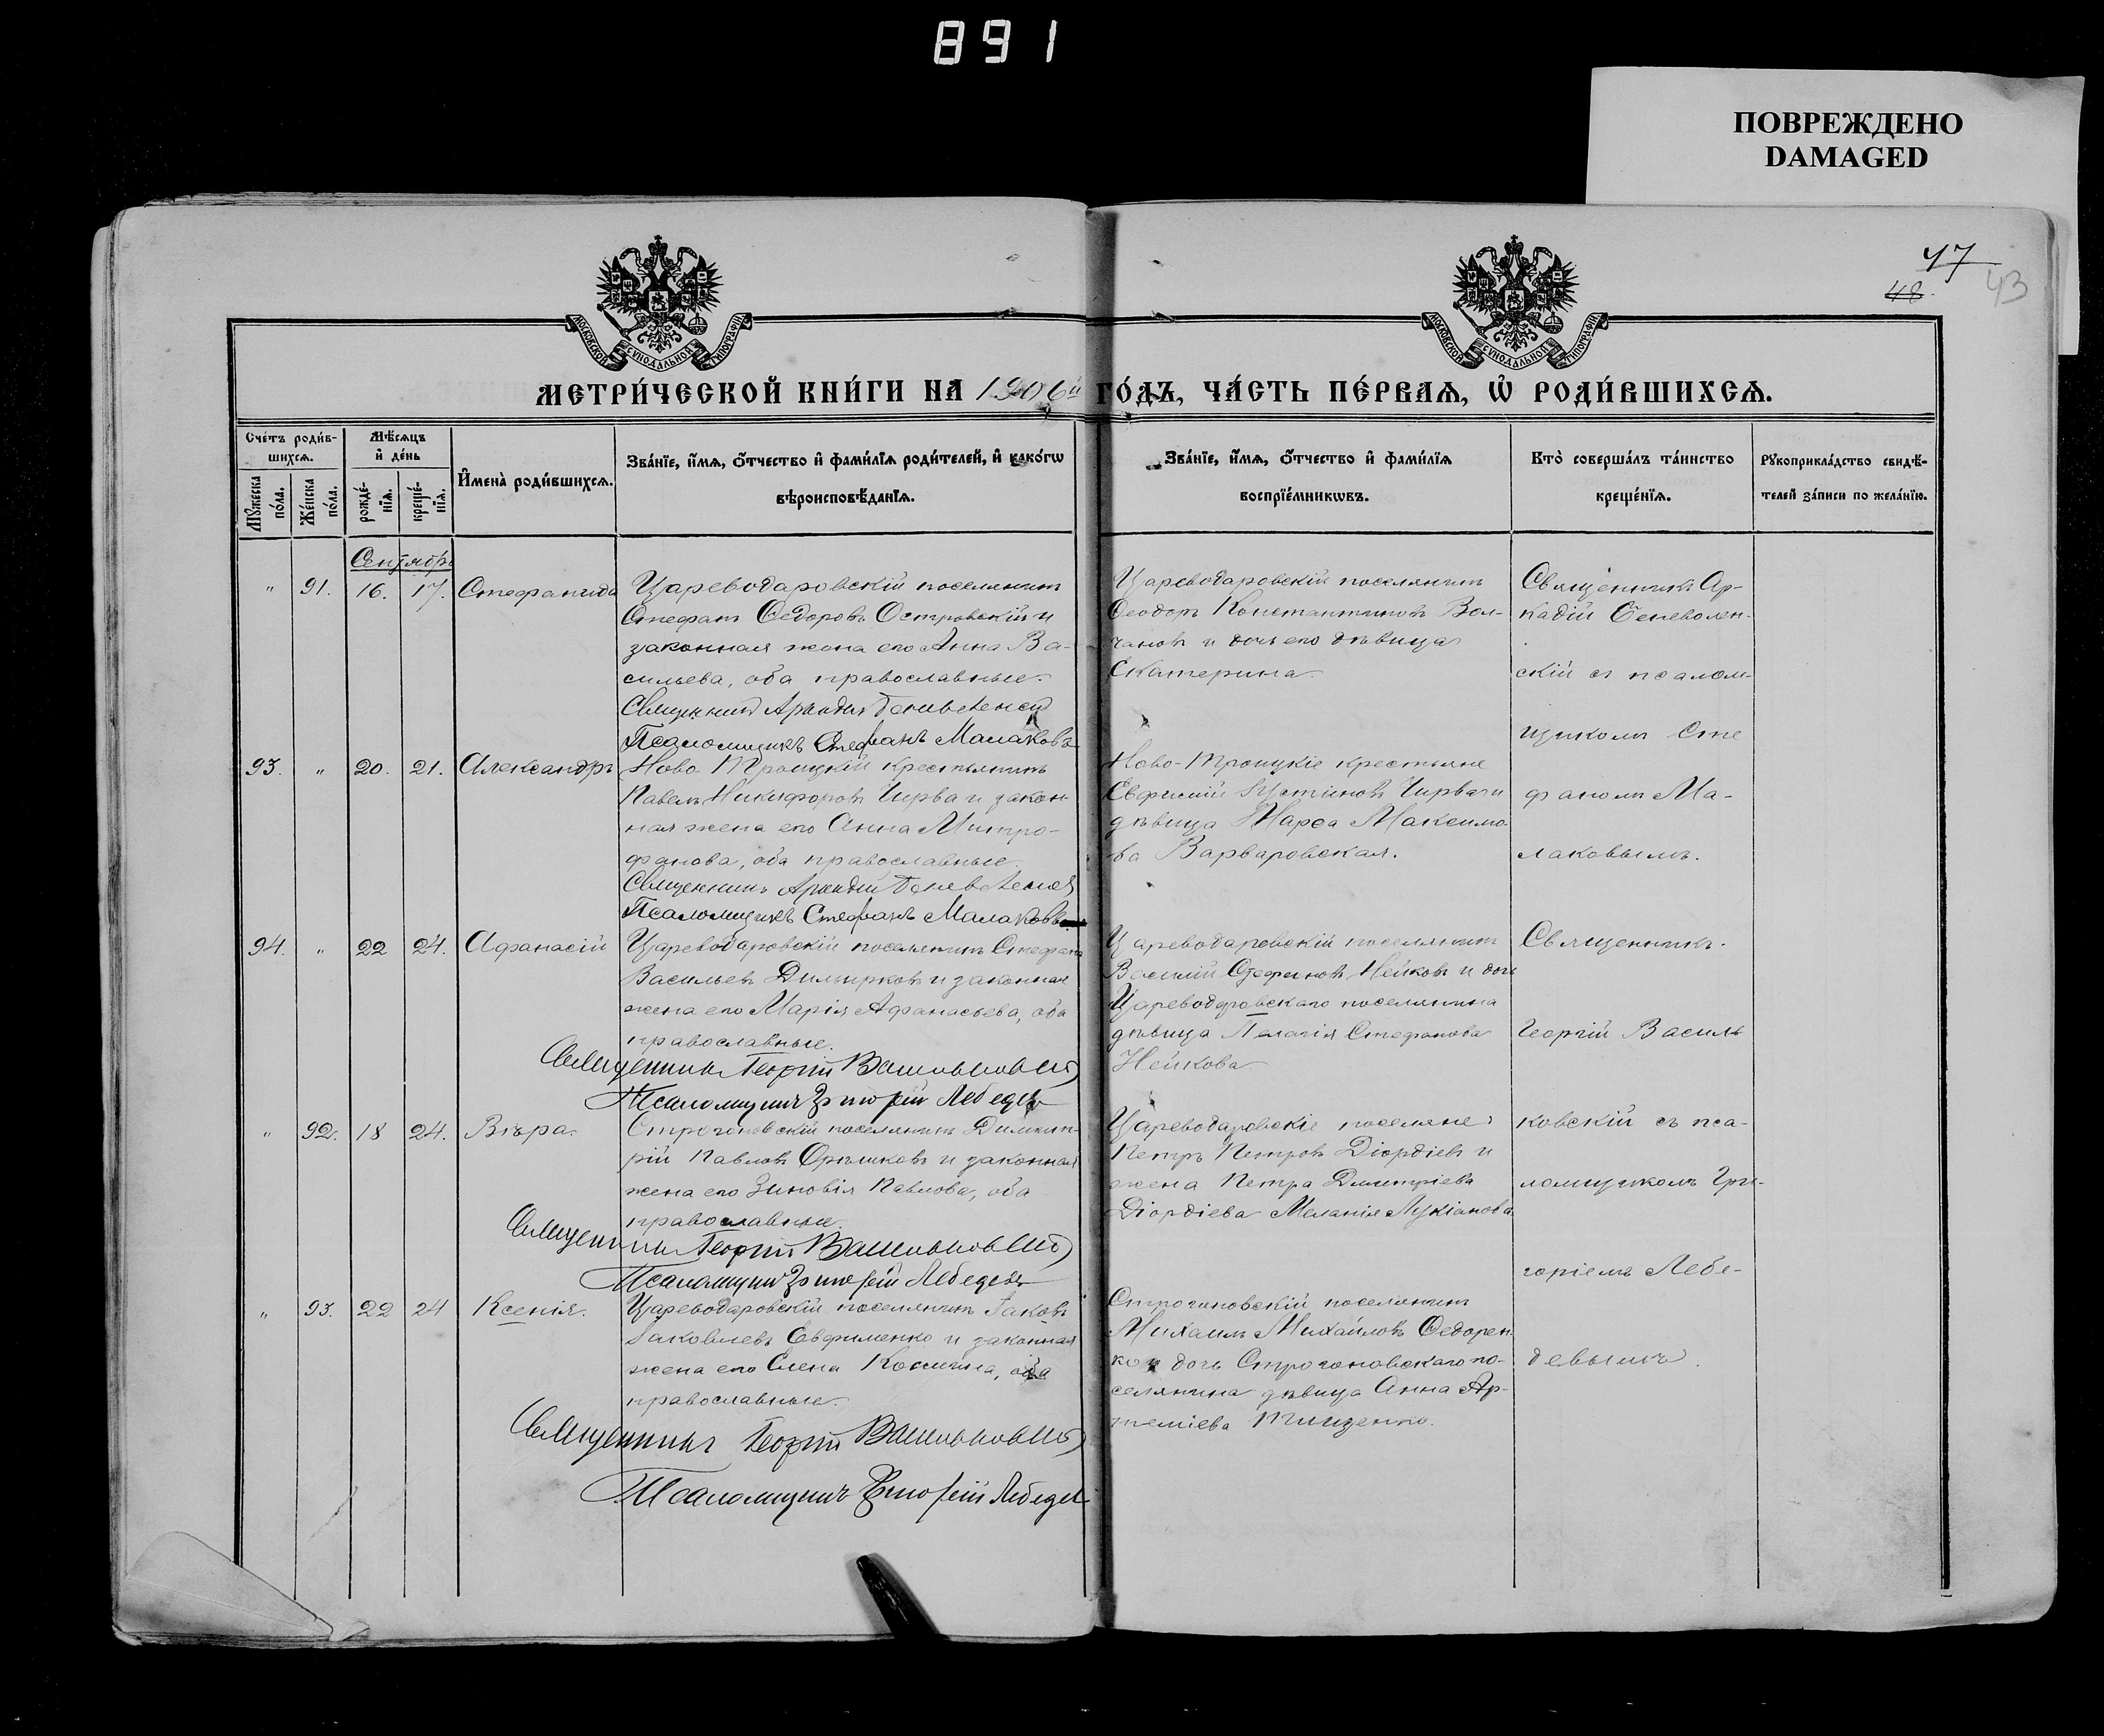 891
ПОВРЕЖДЕНО
DAMAGED
47
48.
43
МОСКОВСКОЙ СѴНОДАЛЬНОЙ ТИПОГРАФІИ
МОСКОВСКОЙ СѴНОДАЛЬНОЙ ТИПОГРАФІИ
МЕТРИ́ЧЕСКОЙ КНИ́ГИ НА 1906й ГО́ДЪ, ЧА́СТЬ ПЕ́РВАѦ, Ѡ҆ РОДИ́ВШИХСѦ.
Сче́тъ роди́в-
шихсѧ.
Мꙋ́жеска по́ла.
Же́нска по́ла.
Мѣ́сѧцъ
и҆ де́нь
рожде́-
нїѧ.
креще́-
нїѧ.
И҆мена̀ роди́вшихсѧ.
Зва́нїе, и҆́мѧ, ѻ҆́тчество и҆ фами́лїѧ роди́телей, и҆ како́гѡ
вѣроисповѣ́данїѧ.
Зва́нїе, и҆́мѧ, ѻ҆́тчество и҆ фами́лїѧ
воспрїе́мникѡвъ.
Кто̀ соверша́лъ та́инство
креще́нїѧ.
Рꙋкоприкла́дство свидѣ́-
телей за́писи по жела́нїю.
Сентябрь
" 91. 16. 17. Стефанида
Цареводаровскій поселянинъ
Стефанъ Ѳедоровъ Островскій и
законная жена его Анна Ва-
сильева, оба православные.
Священникъ Аркадій Беневоленскій
Псаломщикъ Стефанъ Малаковъ
Цареводаровскій поселянинъ
Ѳеодоръ Константиновъ Вол-
чановъ и дочь его дѣвица
Екатерина
Священникъ Ар-
кадій Беневолен-
скій съ псалом-
щикомъ Сте
фаномъ Ма-
лаковымъ.
93. " 20. 21. Александръ
Ново Троицкій крестьянинъ
Павелъ Никифоровъ Чирва и закон-
ная жена его Анна Митро-
фанова, оба православные.
Священникъ Аркадій Беневоленскій
Псаломщикъ Стефанъ Малаковъ
Ново-Троицкіе крестьяне
Евфимій Іустиновъ Чирва и
дѣвица Марѳа Максимо
ва Варваровская.
94. " 22 24. Афанасій
Цареводаровскій поселянинъ Стефанъ
Васильевъ Димирковъ и законная
жена его Марія Афанасьева, оба
православные.
Священникъ Георгій Васильковскій
Псаломщикъ Григорій Лебедевъ
Цареводаровскій поселянинъ
Василій Стефановъ Нейковъ и дочь
Цареводаровскаго поселянина
дѣвица Пелагія Стефанова
Нейкова
Священникъ
Георгій Василь
ковскій съ пса-
ломщикомъ Гри-
горіемъ Лебе-
девымъ.
" 92. 18 24. Вѣра.
Строгоновскій поселянинъ Димит-
рій Павловъ Орѣшковъ и законная
жена его Зиновія Павлова, оба
православные.
Священникъ Георгій Васильковскій
Псаломщикъ Григорій Лебедевъ
Цареводаровскіе поселяне
Петръ Петровъ Діордіевъ и
жена Петра Димитріева
Діордіева Меланія Лукіанова
" 93. 22 24 Ксенія.
Цареводаровскій поселянинъ Іаковъ
Іаковлевъ Евфименко и законная
жена его Елена Космина, оба
православные.
Священникъ Георгій Васильковскій
Псаломщикъ Григорій Лебедев
Строгоновскій поселянинъ
Михаилъ Михайловъ Ѳедорен
ко и дочь Строгоновскаго по-
селянина дѣвица Анна Ар-
темiева Тищенко.